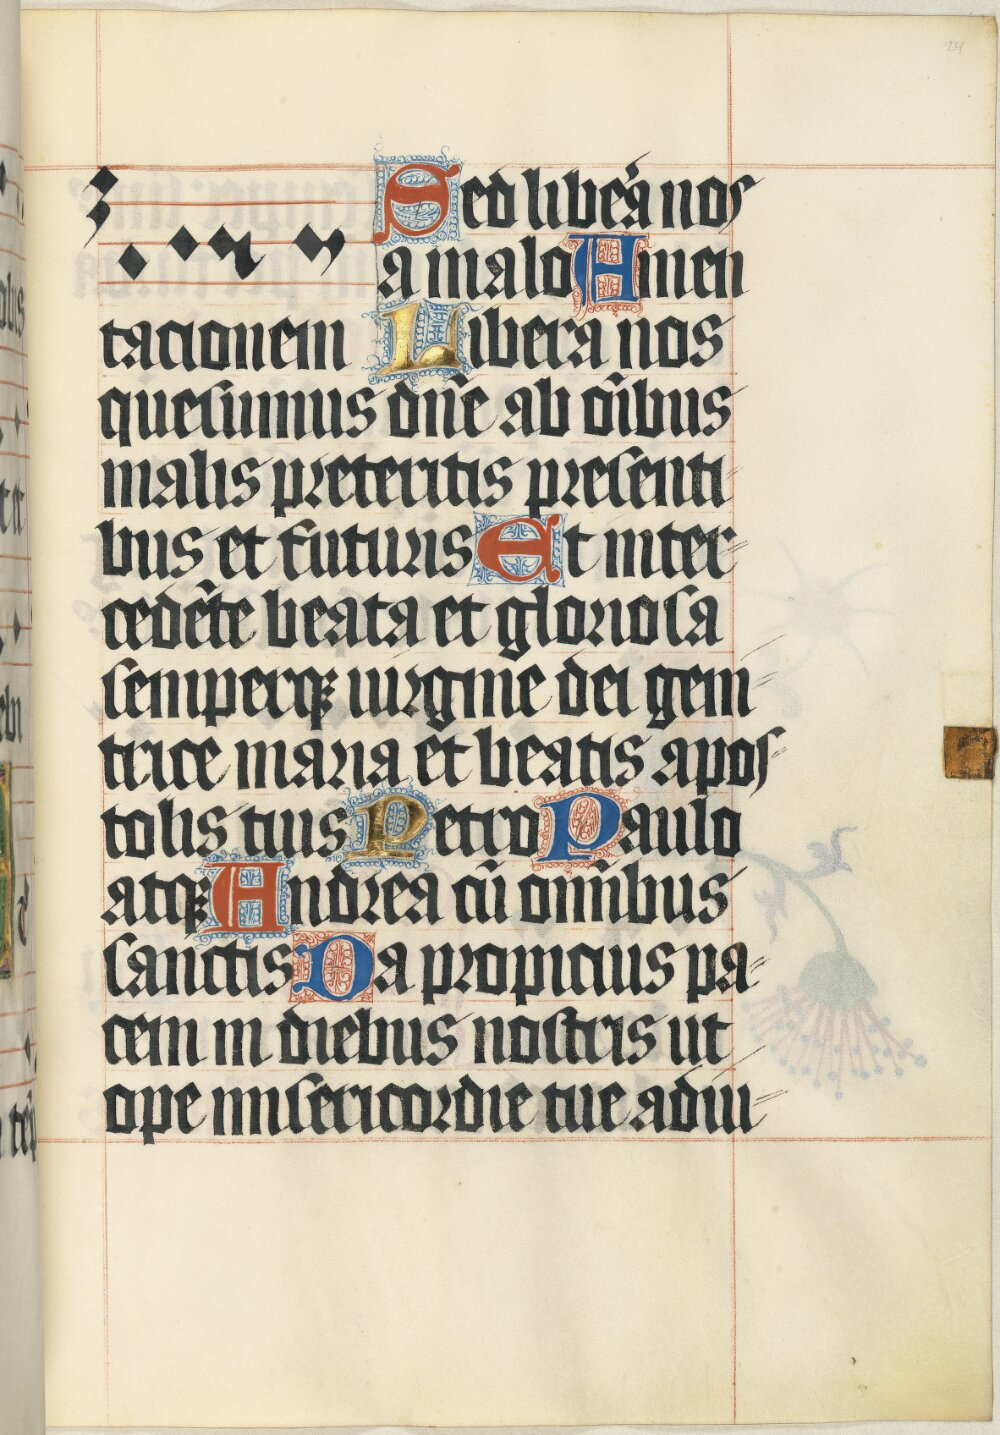 24
Sed libe͛a nos
a malo Amen
tacionem Libera nos
quesumus dn̄e ab oı̄bus
malis preteritis presenti⸗
bus et futuris Et inter⸗
cedēte beata et gloriosa
semperqꝫ uirgine dei geni⸗
trice maria et beatis apos
tolis tuis Petro Paulo
atqꝫ Andrea cū omı̄bus
sanctis Da propicius pa⸗
cem in diebus nostris ut
ope misericordie tue adiu⸗